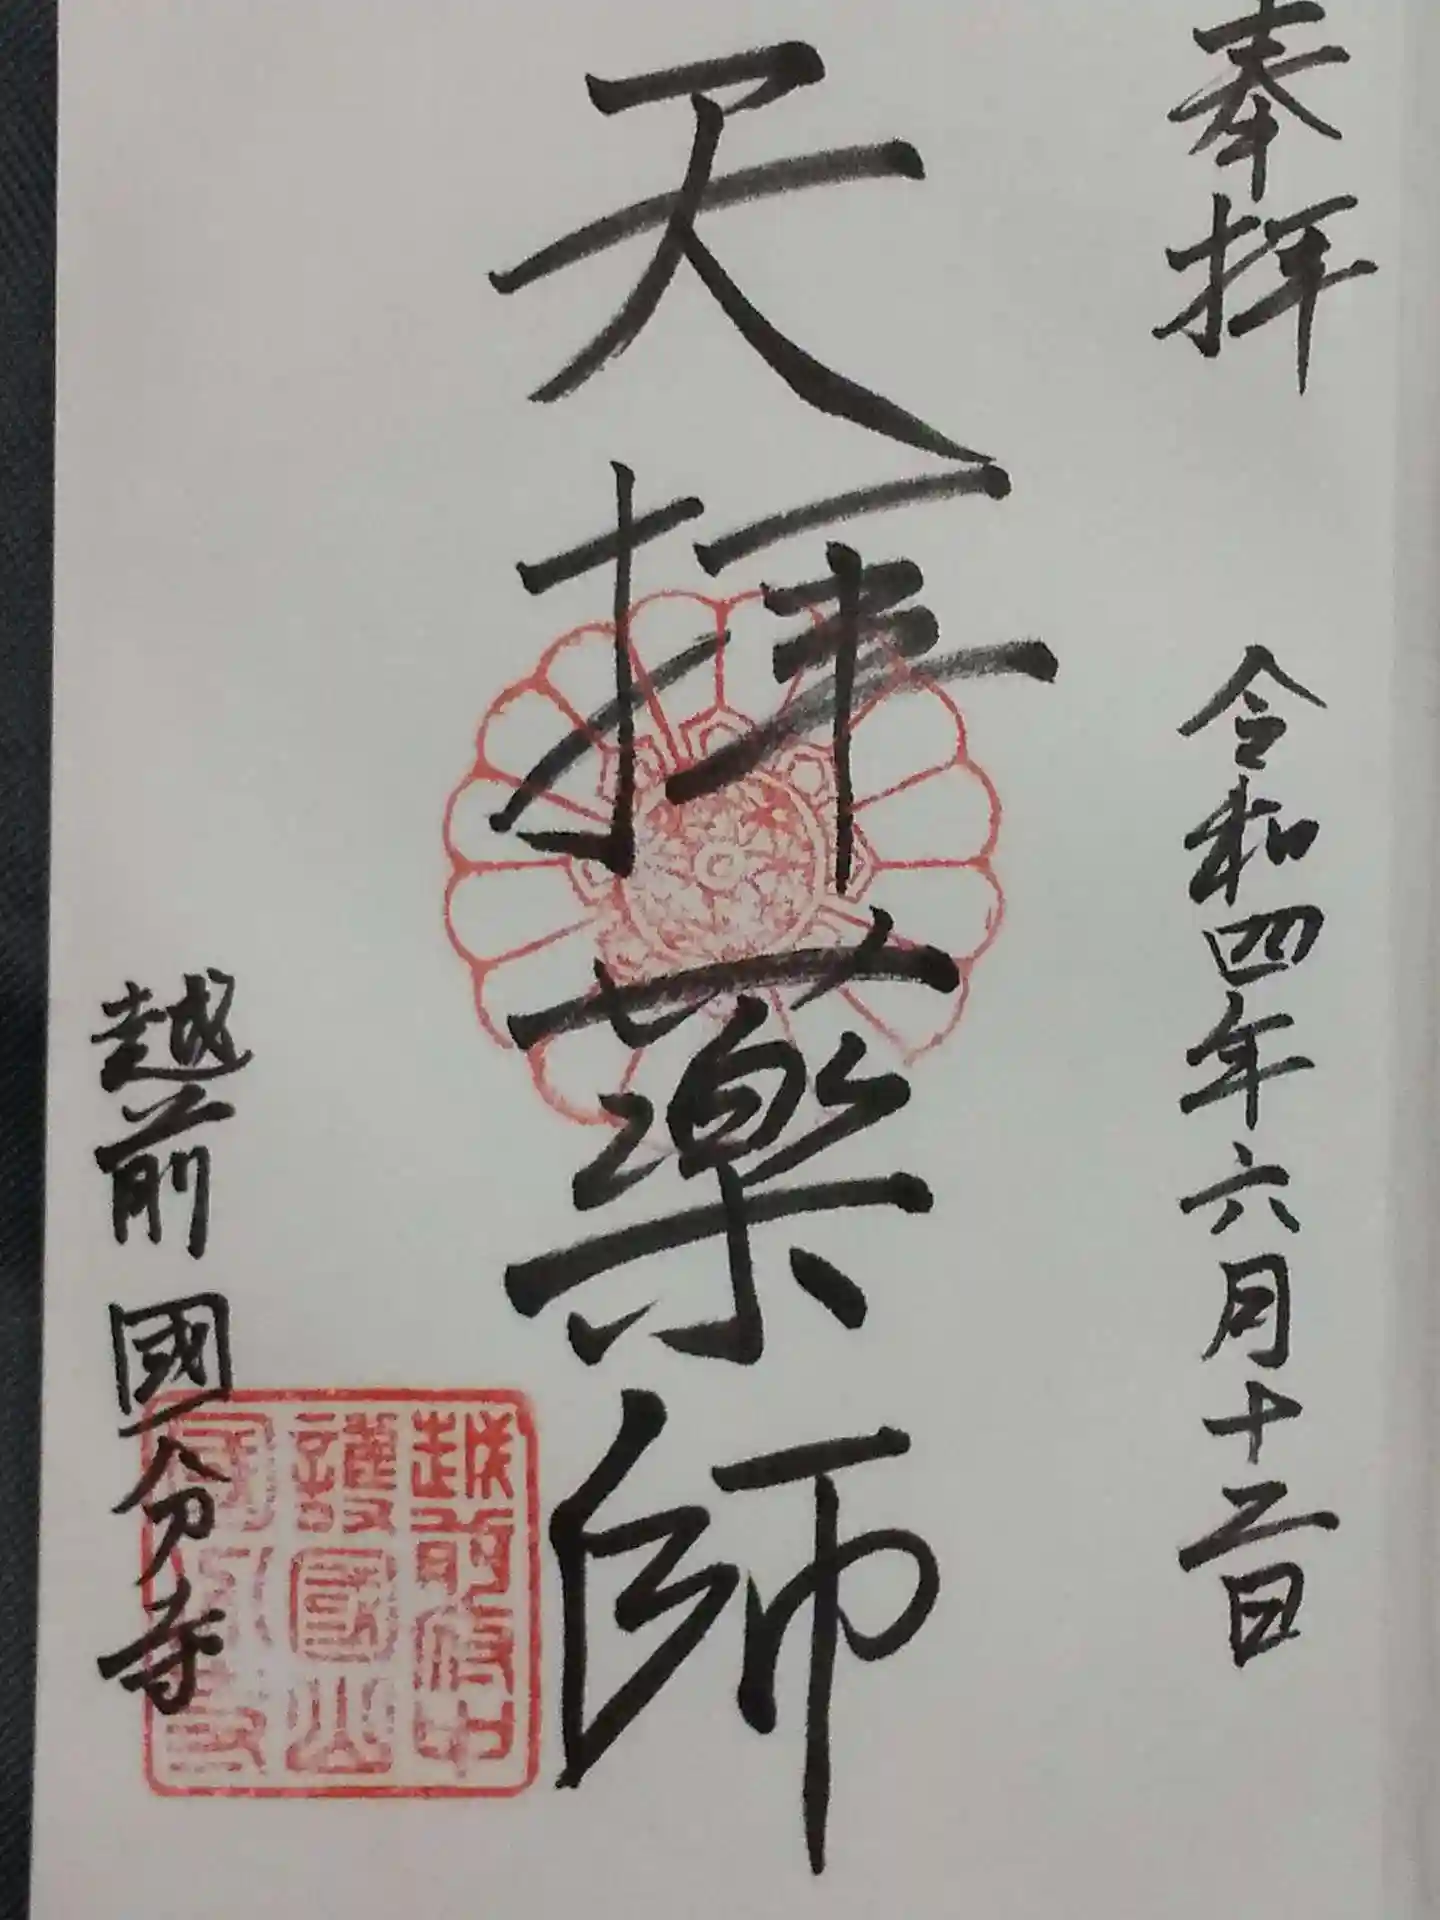 奉拝 令和四年六月十二日
天拝薬師
越前 國分寺
越前府中
護國山
國分寺